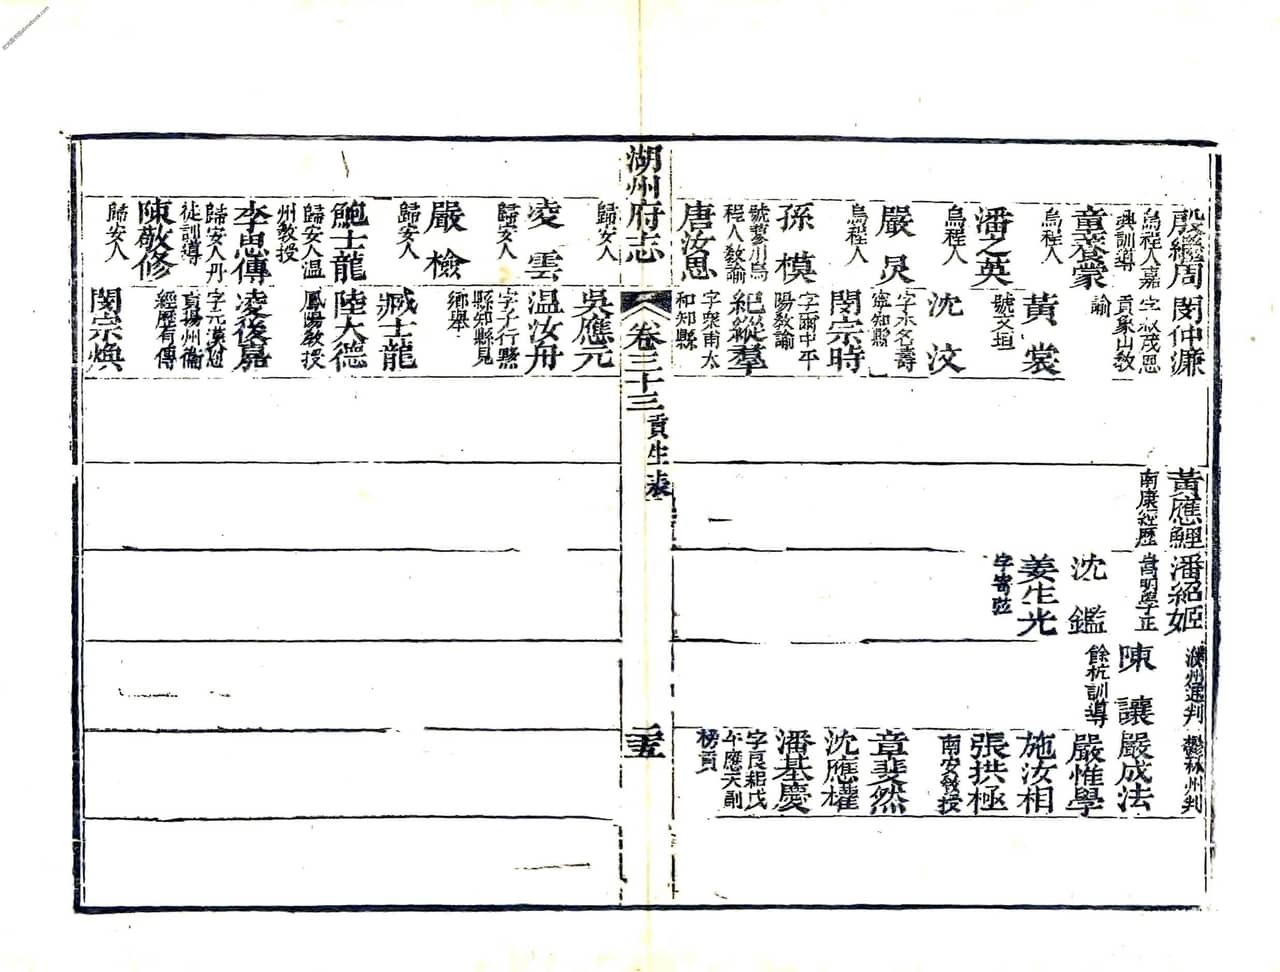 殷繼周
烏程人嘉
興訓導
童養蒙
烏程人
潘之英
烏程人
嚴炅
烏程人
孫模
號蓼川烏
程人敎諭
唐汝思
閔仲濂
字叔茂恩
貢象山敎
諭
黃裳
號文垣
沈汶
字永名壽
寧知縣
閔宗時
字爾中平
陽敎諭
紀從羣
字榮甫太
和知縣
黃應鯉
南康經歷
潘紹姬
嵩明學正
沈鑑
姜生光
字寄弦
濮州通判
陳讓
餘杭訓導
鬱林州判
嚴成法
嚴惟學
施汝相
張拱極
南安敎授
章斐然
沈應權
潘基慶
字良耜戊
午應天副
榜貢
湖州府志
卷三十三
貢生表
歸安人
凌雲
歸安人
嚴檢
歸安人
鮑士龍
歸安人溫
州敎授
李思傳
歸安人丹
徒訓導
陳敬修
歸安人
吳應元
溫汝舟
字子行黟
縣知縣見
鄉舉
臧士龍
陸大德
鳳陽敎授
凌後嘉
字元漢
貢揚州衞
經歷有傳
閔宗煥